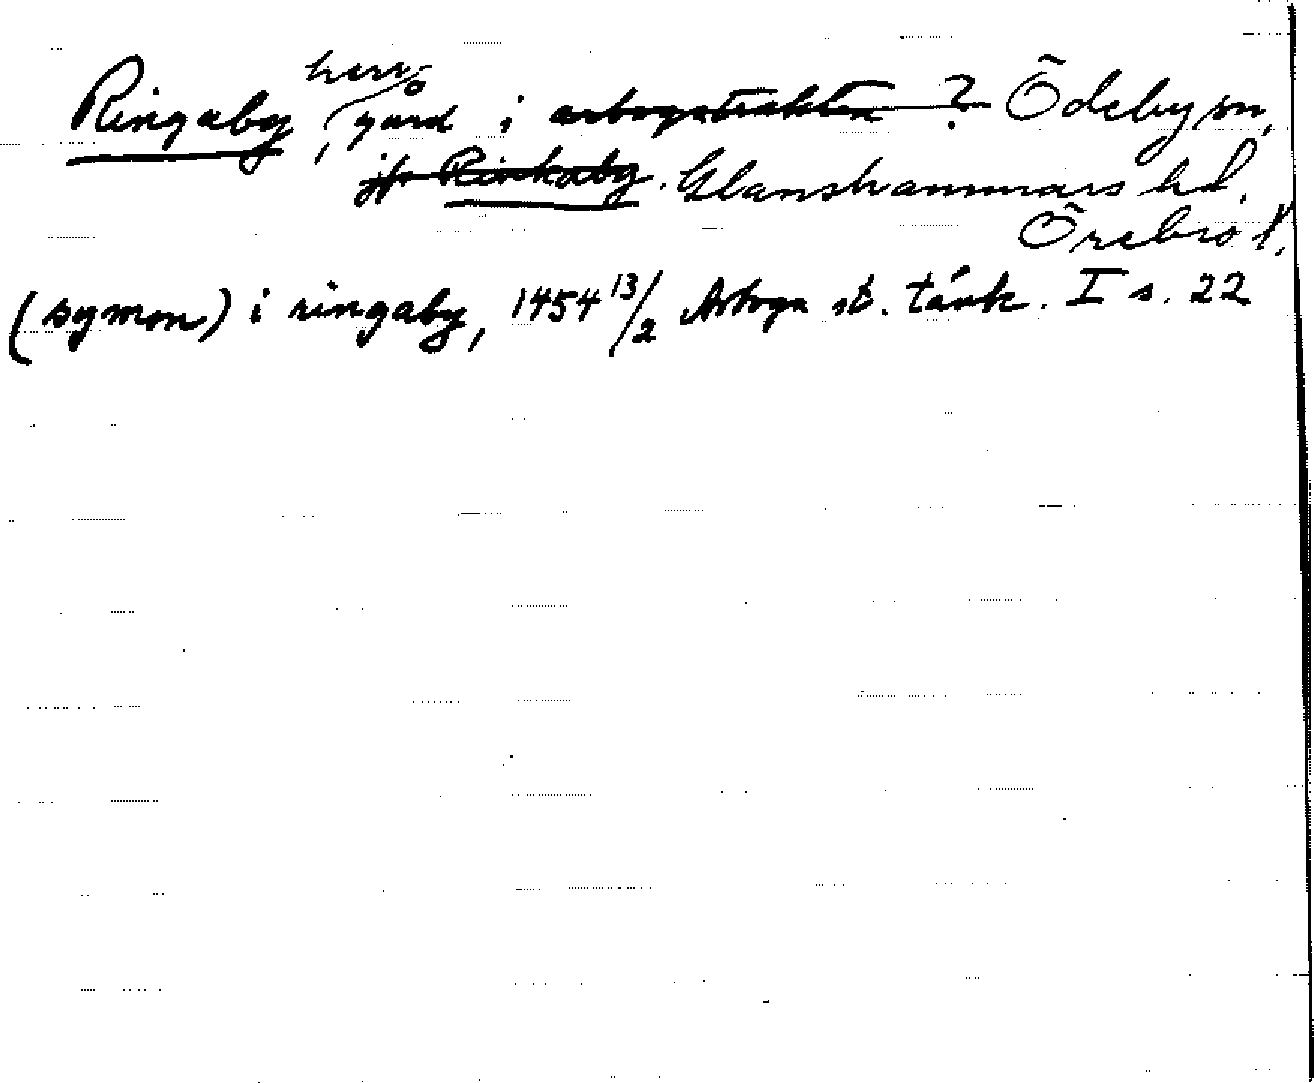 Ringaby, herrgård i arbogatrakten ? Ödeby sn,
jfr Rinkaby. Glanshammars hd.
Örebro l.
(symon) i ringaby, 1454 13/2 Arboga st. tänk. I s. 22